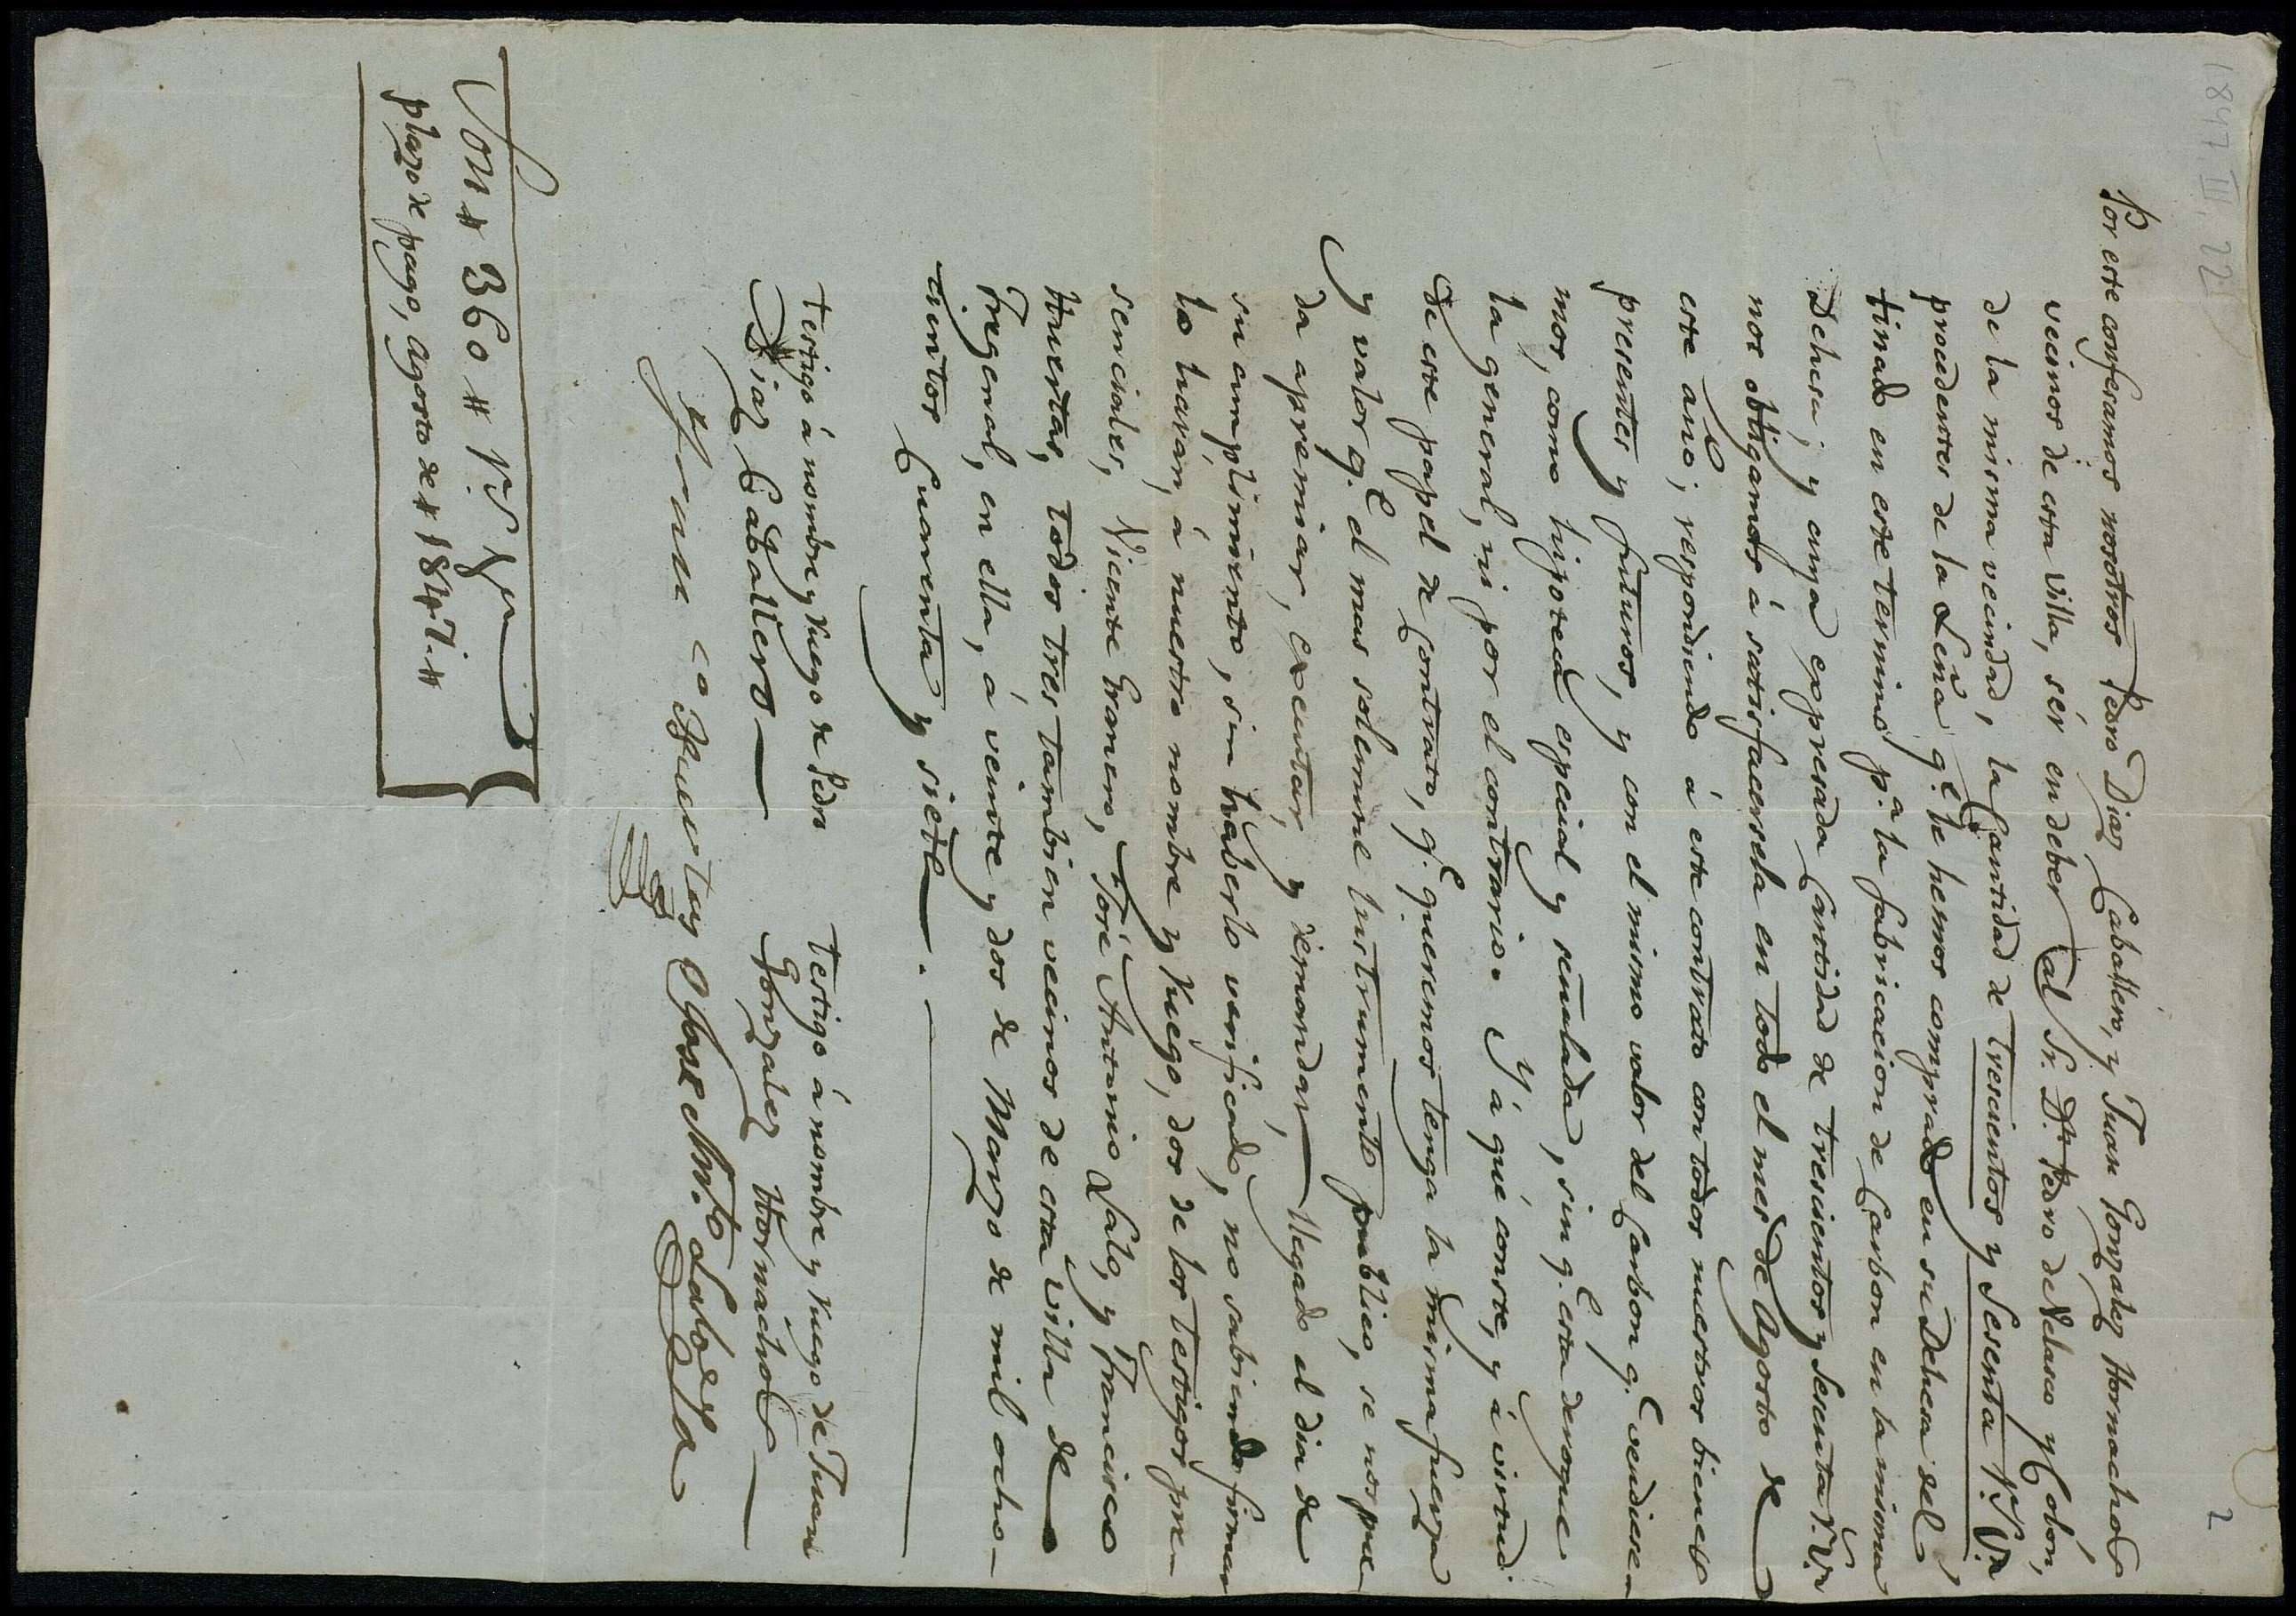 1847. III. 22
2
Por este confesamos nosotros Pedro Diaz Caballero, y Juan Gonzalez Hornacho
vecinos de esta villa, sér en deber al Sr. Dn. Pedro de Velasco y Cobón,
de la misma vecindad, la Cantidad de trescientos y Sesenta r.s v.n
procedentes de la Leña q.e le hemos comprado en su Dehesa del
tinado en este termino p.a la fabricacion de Carbon en la misma
Dehesa; y cuya expresada Cantidad de trescientos y Sesenta r.s v.n
nos obligamos á satisfacersela en todo el mes de Agosto de
este año; respondiendo á este contrato con todos nuestros bienes
presentes y futuros, y con el mismo valor del Carbon q.e vendiese-
mos, como hipoteca especial y señalada, sin q.e esta derogue
la general, ni por el contrario. Y á qué conste, y á virtud
de este papel de Contrato, q.e queremos tenga la misma fuerza
y valor q.e el mas solemne Instrumento publico, se nos pue
da apremiar, executar, y demandar llegado el dia de
su cumplimiento, sin haberlo verificado, no sabiendo firmar
lo harán, á nuestro nombre y Ruego, dos de los testigos pre-
senciales, Vicente Granero, José Antonio Lalo, y Francisco
Huertas, todos tres tambien vecinos de esta villa de
Fregenal, en ella, á veinte y dos de Marzo de mil ocho-
cientos Cuarenta y siete.
Testigo á nombre y Ruego de Pedro
Diaz Caballero
Testigo á nombre y Ruego de Juan
Gonzalez Hornacho
Huertas
Jose Ant.o Lalo
Son # 360 # r.s v.n
plazo de pago, agosto de # 1847. #